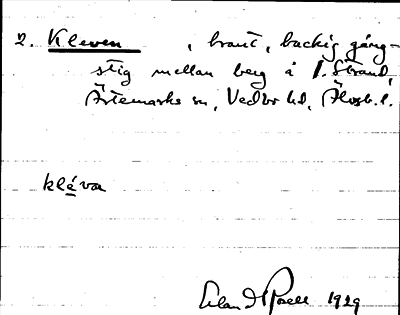 2. Kleven , brant, backig gång-
stig mellan berg å 1. Strand,
Ärtemarks sn, Vedbo hd, Älvsb. l.
kléva
1929